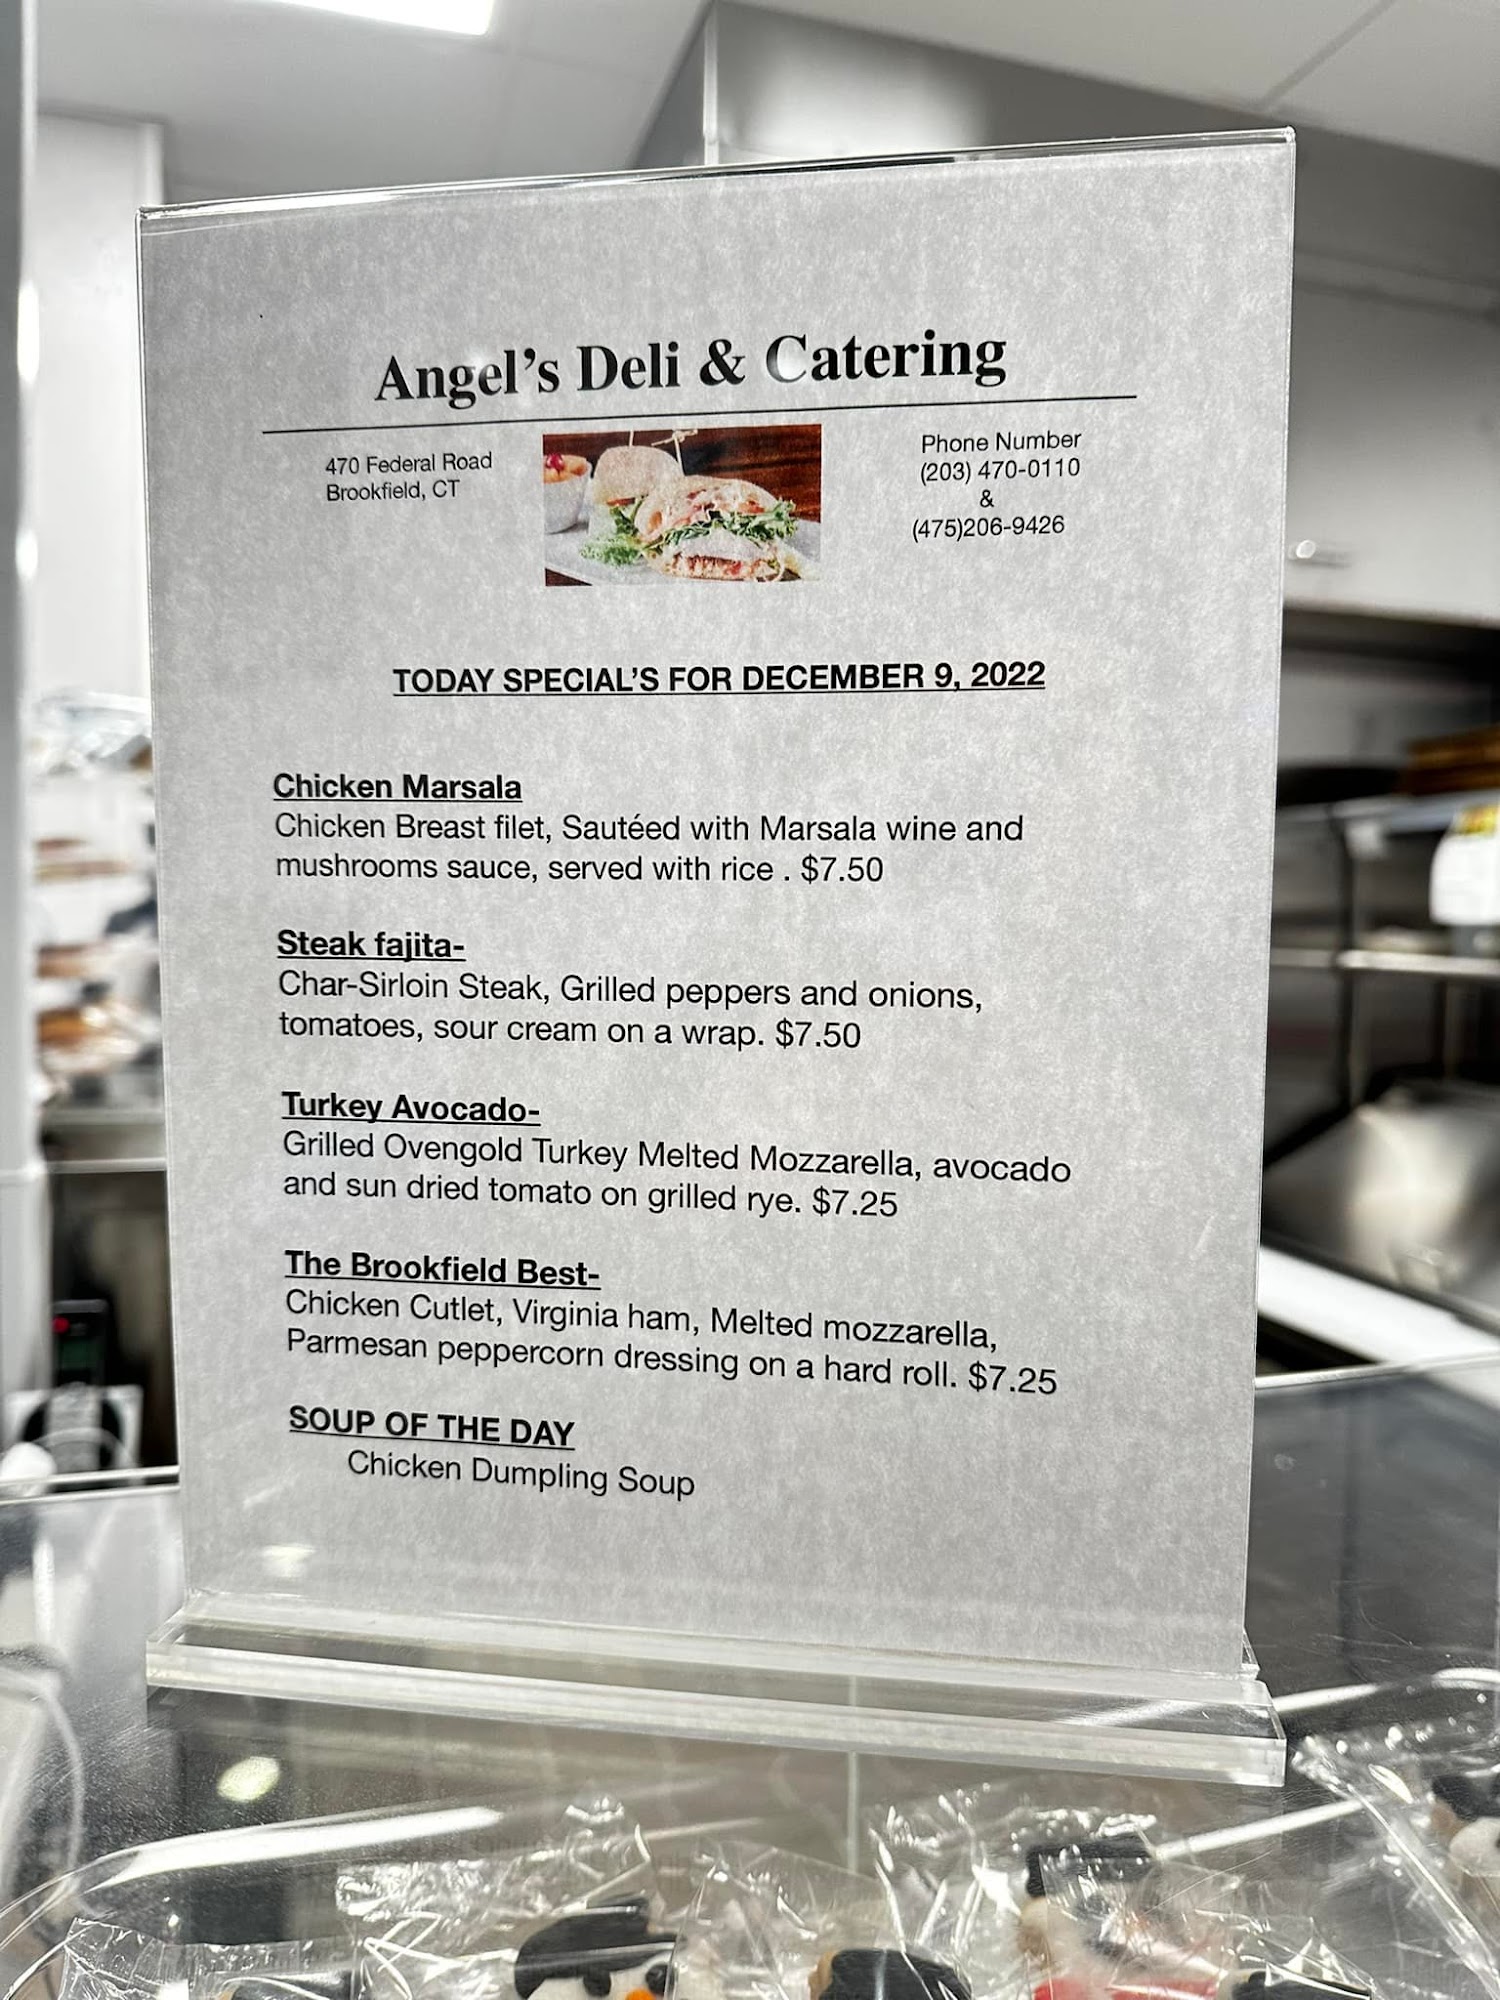 Angel's Deli & Catering
470 Federal Road
Brookfield, CT
Phone Number
(203) 470-0110
&
(475)206-9426
TODAY SPECIAL'S FOR DECEMBER 9, 2022
Chicken Marsala
Chicken Breast filet, Sautéed with Marsala wine and
mushrooms sauce, served with rice . $7.50
Steak fajita-
Char-Sirloin Steak, Grilled peppers and onions,
tomatoes, sour cream on a wrap. $7.50
Turkey Avocado-
Grilled Ovengold Turkey Melted Mozzarella, avocado
and sun dried tomato on grilled rye. $7.25
The Brookfield Best-
Chicken Cutlet, Virginia ham, Melted mozzarella,
Parmesan peppercorn dressing on a hard roll. $7.25
SOUP OF THE DAY
Chicken Dumpling Soup